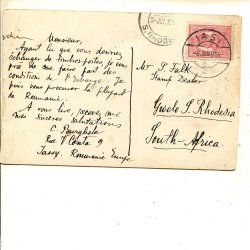 Monsieur,
Ayant lu que vous désirez
échanger de timbres-postes, je vous
prie de me faire part des
condition de l'échange. Je
puis vous procurer la plupart
de Roumanie.
A vous lire, recevez mr
mes sincères salutations
C.
Rue V. Conta 9
Jassy. Roumanie Europe
IASI
Mr P. Falk
Stamp Dealer
Gwelo S. Rhodesia
South-Africa